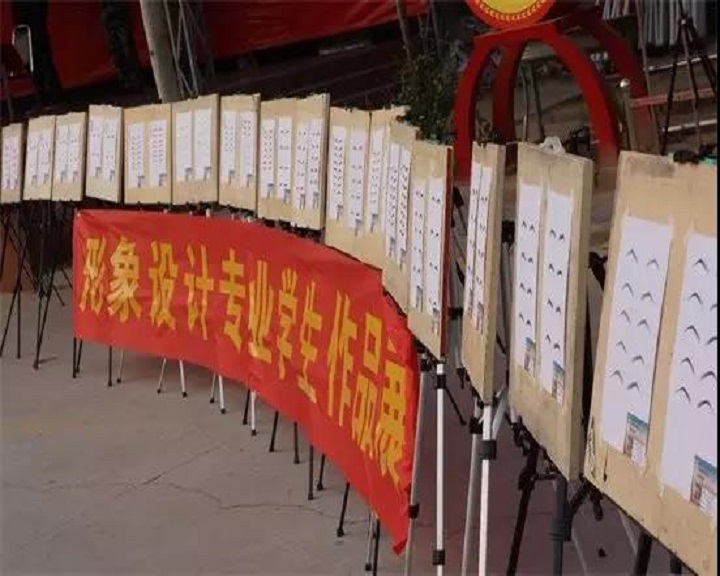 形象设计专业学生作品展